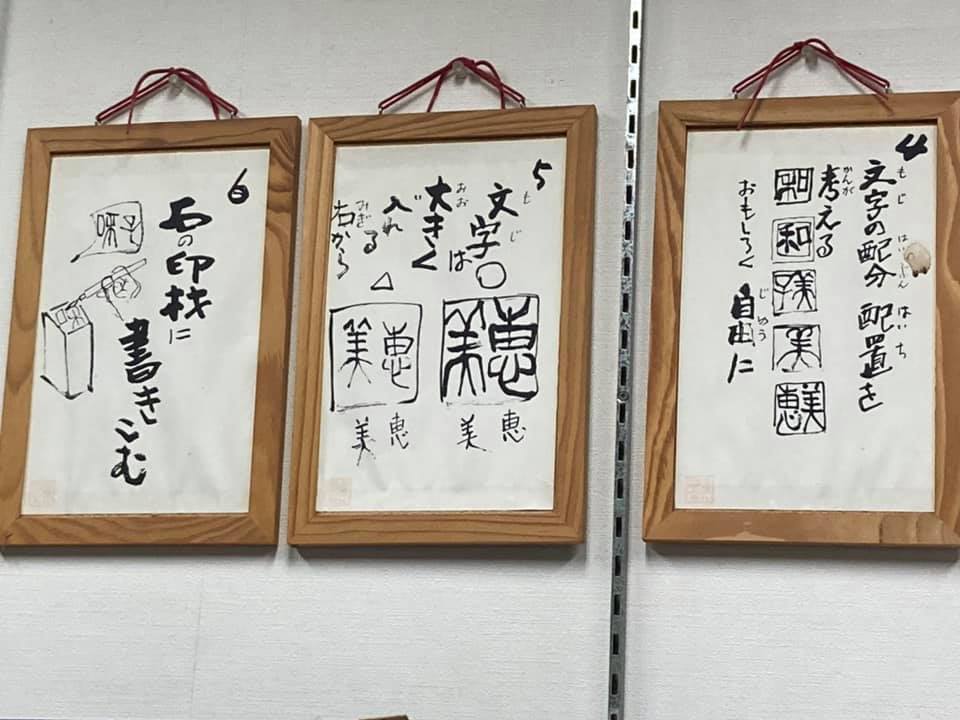 4
もじ はいぶん はいち
文字の配分 配置を
かんが
考える
じゆう
おもしろく 自由に
恵美
5
もじ
文字は
○
おお
大きく
入れる
みぎ
右から
△
恵美
恵美
恵
美
恵
美
6
石の印材に
書きこむ